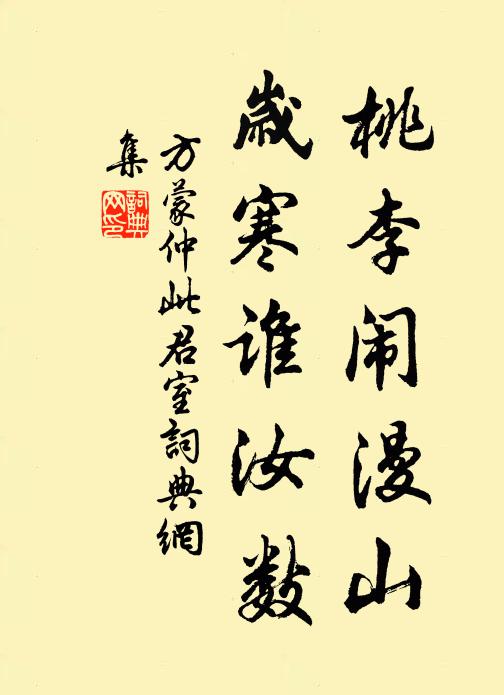 桃李闹漫山
岁寒谁汝数
方蒙仲此君室詞典網
集
詞典網印